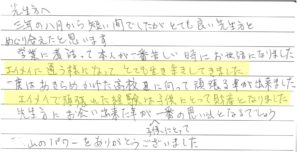 先生方へ
三年の八月から短い間でしたがとても良い先生方と
めぐり会えたと思います
学業に専念って本人が一番苦しい時にお世話になりました
エイメイに通う様になって とても生き生きしてきました
一度はあきらめかけた高校に向って頑張る事が出来ました
エイメイで頑張った経験は子供にとって財産となりました
先生方にお会い出来た事が一番の思い出となるでしょう
子供にとって
沢山のパワーをありがとうございました